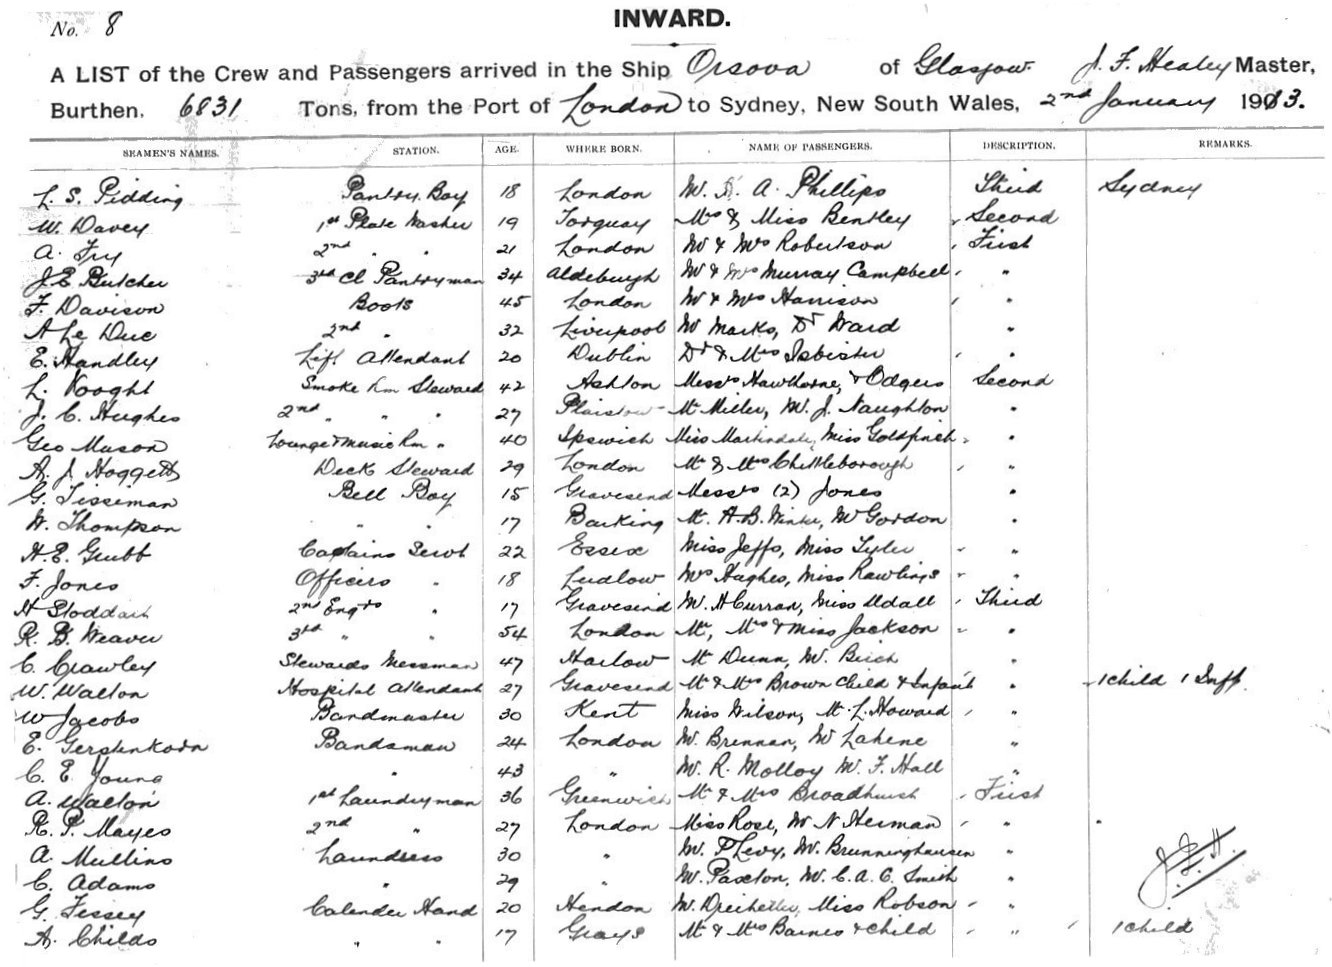 No. 8
INWARD.
A LIST of the Crew and Passengers arrived in the Ship Orsova of Glasgow. J. F. Healey Master,
Burthen, 6831 Tons, from the Port of London to Sydney, New South Wales, 2nd January 1913.
SEAMEN'S NAMES. STATION. AGE. WHERE BORN. NAME OF PASSENGERS. DESCRIPTION. REMARKS.
L. S. Pidding Pantry Boy 18 London Mr. A. Phillips Third Sydney
W. Davey 1st Plate Washer 19 Torquay Mrs & Miss Bentley Second
A. Fry 2nd " " 21 London Mr & Mrs Robertson First
J. E. Butcher 3rd Cl Pantryman 34 Aldeburgh Mr & Mrs Murray Campbell "
F. Davison Boots 45 London Mr & Mrs Harrison "
A Le Duc 2nd " 32 Liverpool Mr Marks, Dr Ward "
E. Handley Lift Attendant 20 Dublin Dr & Mrs Isbister "
L. Vooght Smoke Rm Steward 42 Ashton Messrs Hawthorne, & Odgers Second
J. C. Hughes 2nd " " " 27 Plaistow Mr Miller, Mr. J. Naughton "
Geo Mason Lounge & Music Rm " 40 Ipswich Miss Martindale, Miss Goldfinch "
A. J. Hoggett Deck Steward 29 London Mr & Mrs Chittleborough "
G. Tisseman Bell Boy 15 Gravesend Messrs (2) Jones "
W. Thompson " " 17 Barking Mr. A. B. Winter, Mr Gordon "
H. E. Grubb Captains Servt 22 Essex Miss Jeffs, Miss Tyler "
F. Jones Officers " 18 Ludlow Mrs Hughes, Miss Rawlings "
H Stoddart 2nd Engrs " 17 Gravesend Mr. H Curran, Miss Udall Third
R. B. Weaver 3rd " " 54 London Mr, Mrs & Miss Jackson "
C. Crawley Stewards Messman 47 Harlow Mr Dunn, Mr. Birch "
W. Walton Hospital Attendant 27 Gravesend Mr & Mrs Brown Child & Infant " 1 child 1 Inft
W Jacobs Bandmaster 30 Kent Miss Wilson, Mr. L. Howard "
E. Gershenkorn Bandsman 24 London Mr. Brennan, Mr Lahene "
C. E. Young " 43 " Mr. R. Molloy Mr. F. Hall "
A. Walton 1st Laundryman 36 Greenwich Mr & Mrs Broadhurst First
R. P. Mayes 2nd " 27 London Miss Rose, Mr N Herman "
A. Mullins Laundress 30 " Mr. P Levy, Mr. Brunninghausen "
C. Adams " 29 " Mr. Paxton, Mr. C. A. C. Smith "
G. Tissey Calender Hand 20 Hendon Mr. Miss Robson "
A. Childs " " 17 Grays Mr & Mrs Barnes & child " 1 child
J. F. H.